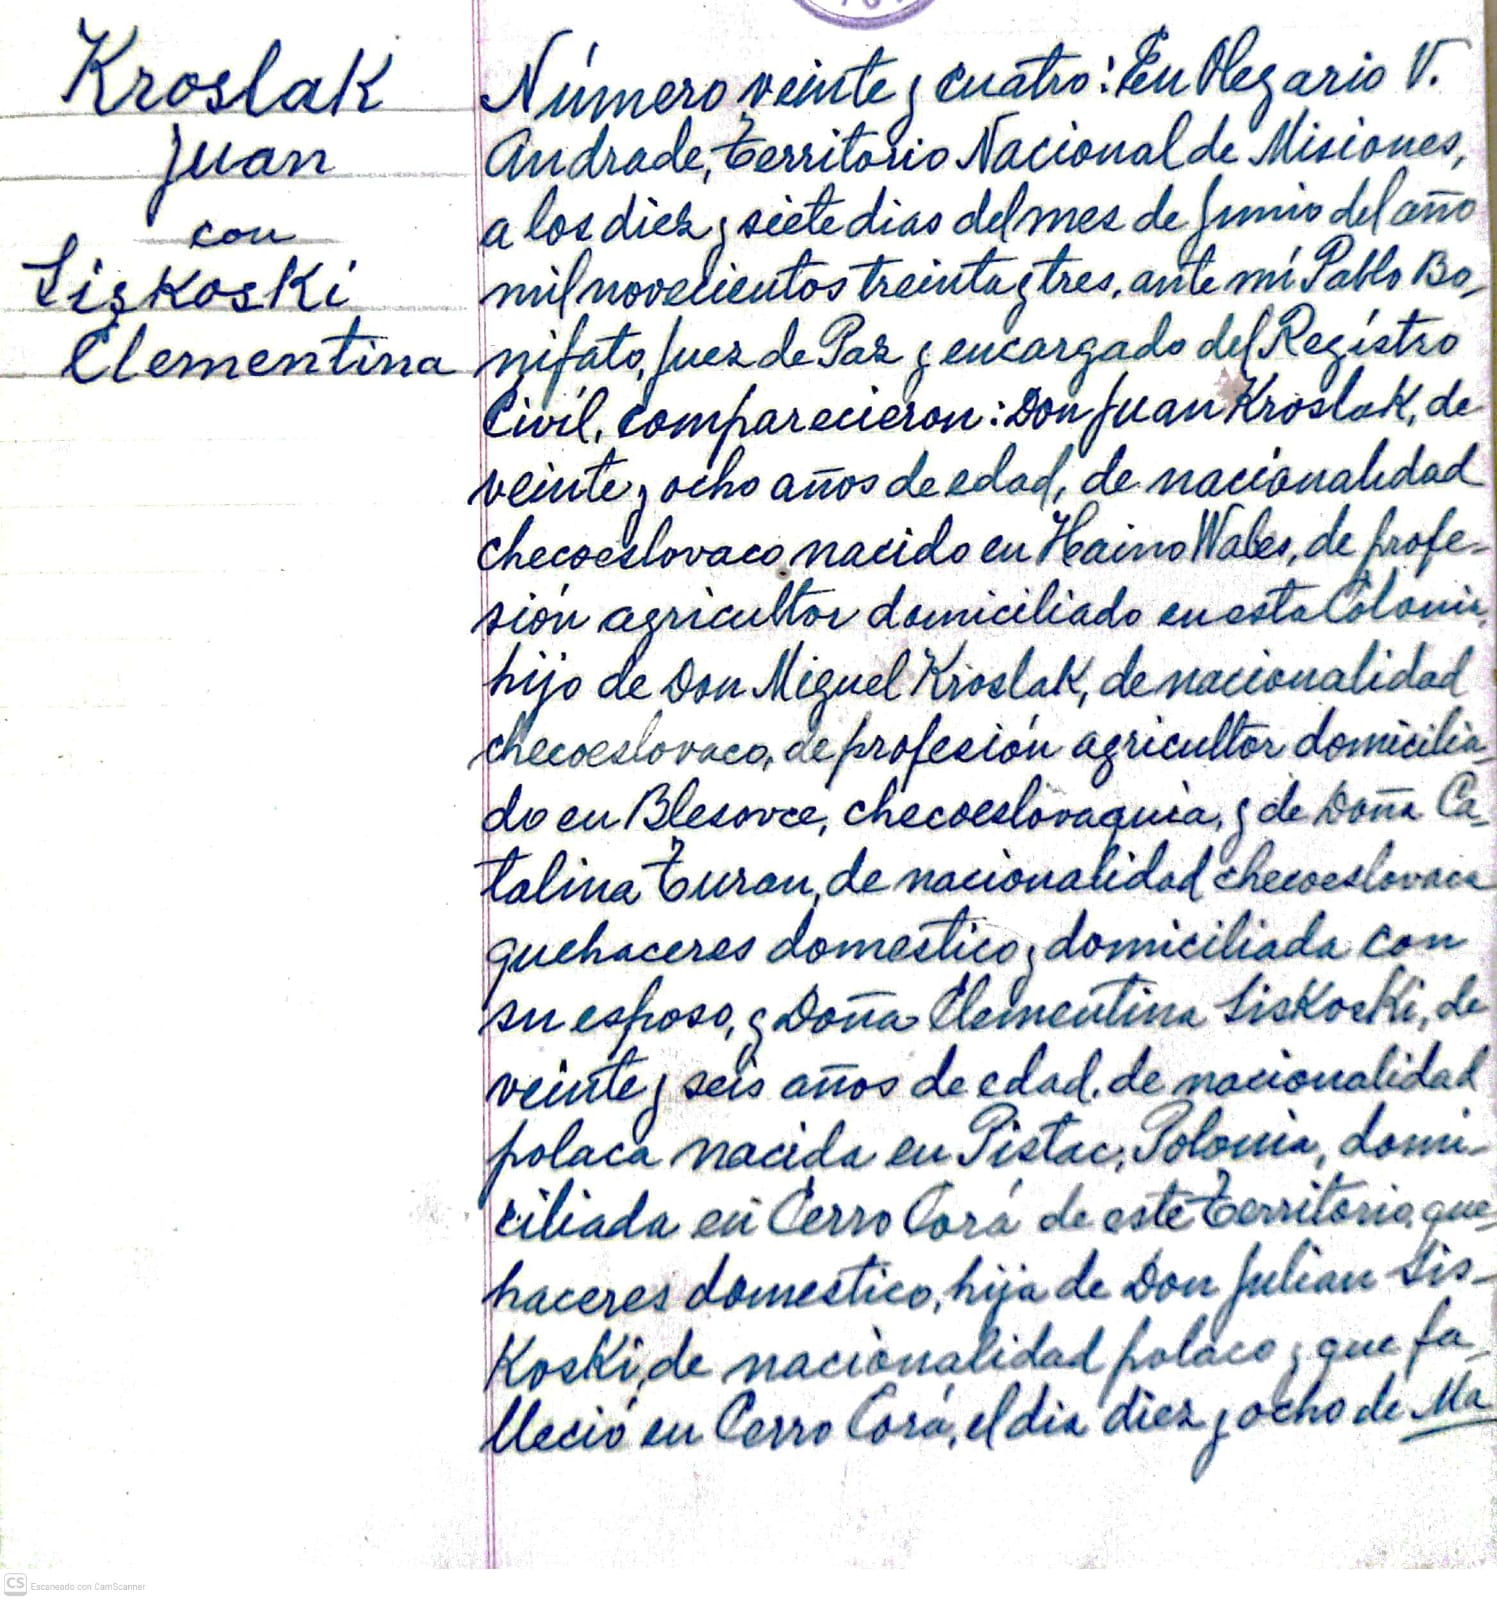 Kroslak
Juan
con
Liskoski
Clementina
Número veinte y cuatro: En Olegario V.
Andrade, Territorio Nacional de Misiones,
a los diez y siete dias del mes de Junio del año
mil novecientos treinta y tres, ante mí Pablo Bo-
nifato, Juez de Paz y encargado del Registro
Civil, comparecieron: Don Juan Kroslak, de
veinte y ocho años de edad, de nacionalidad
checoeslovaco nacido en Haino Wales, de profe-
sión agricultor domiciliado en esta Colonia,
hijo de Don Miguel Kroslak, de nacionalidad
checoeslovaco, de profesión agricultor domicilia-
do en Blesovce, checoeslovaquia, y de Doña Ca-
talina Turan, de nacionalidad checoeslovaca
quehaceres domestico y domiciliada con
su esposo, y Doña Clementina Liskoski, de
veinte y seis años de edad, de nacionalidad
polaca nacida en Pistac, Polonia, domi-
ciliada en Cerro Corá de este Territorio, que-
haceres domestico, hija de Don Julian Lis-
Koski, de nacionalidad polaco y que fa-
lleció en Cerro Corá, el dia diez y ocho de Ma
CS Escaneado con CamScanner